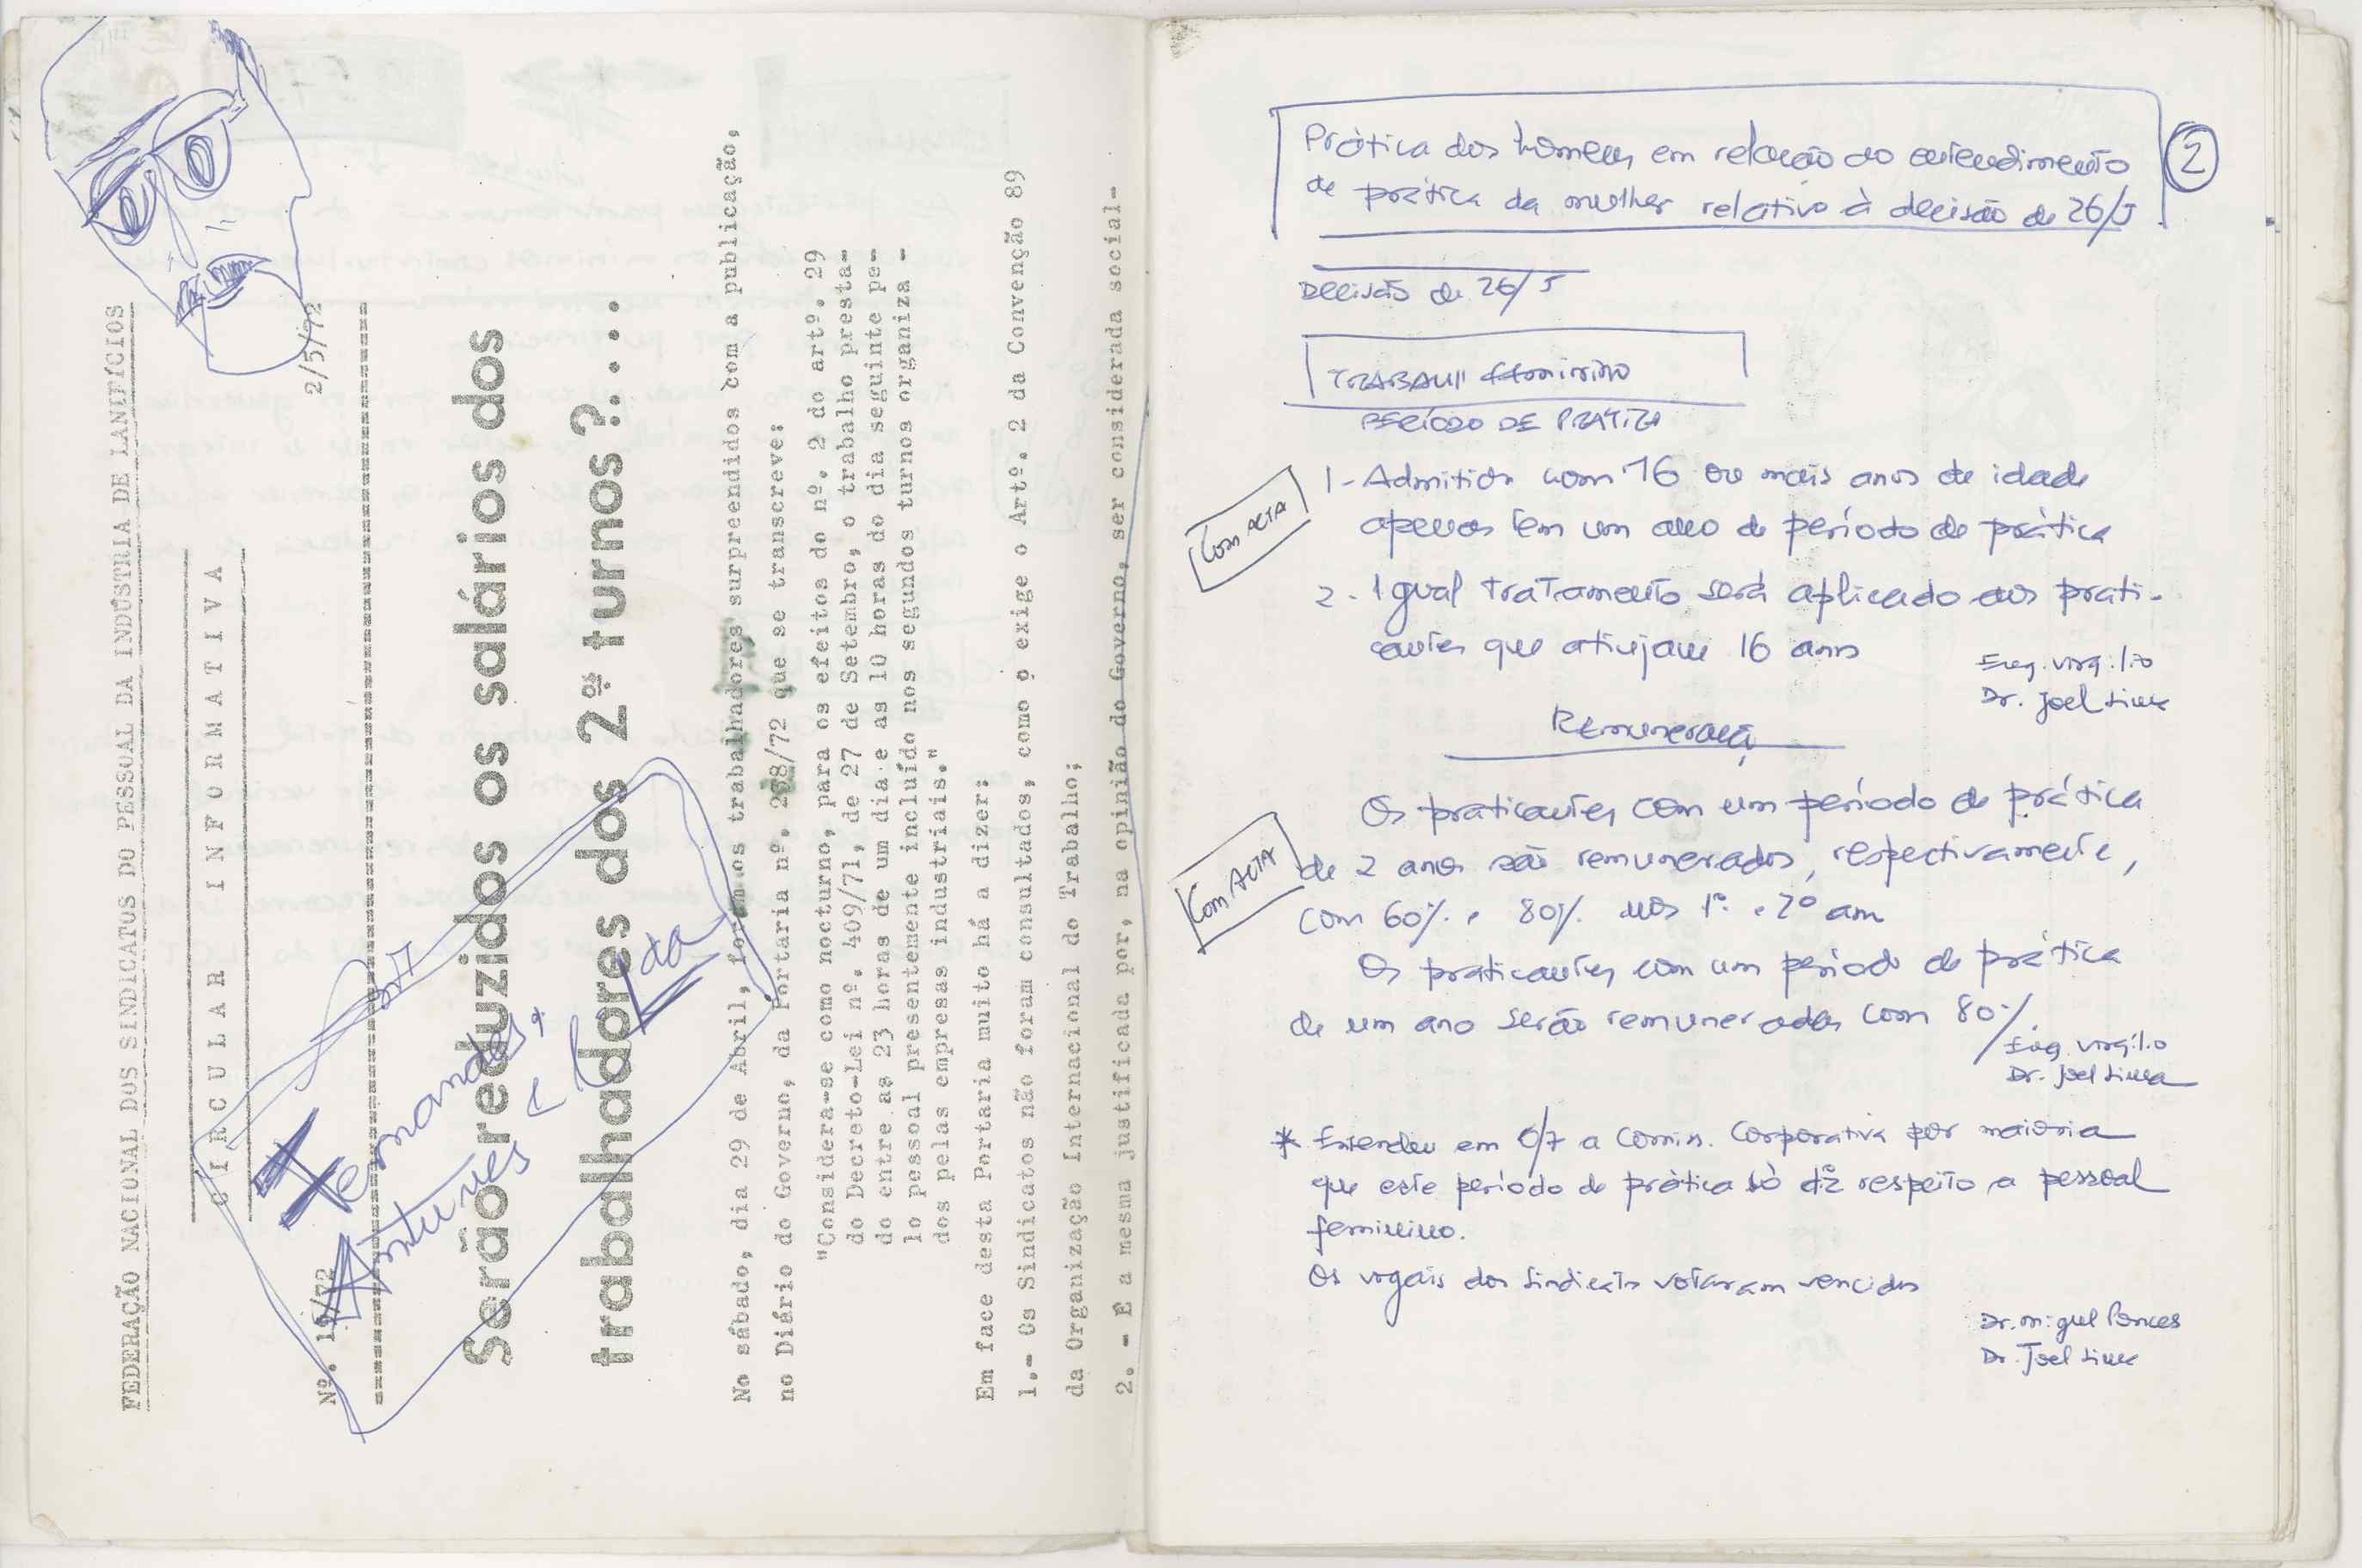 FEDERAÇÃO NACIONAL DOS SINDICATOS DO PESSOAL DA INDÚSTRIA DE LANIFÍCIOS
CIRCULAR INFORMATIVA
Nº. 15/72 2/5/72
Serão reduzidos os salários dos
trabalhadores dos 2ºs turnos ?....
No sábado, dia 29 de Abril, foram os trabalhadores surpreendidos com a publicação,
no Diário do Governo, da Portaria nº. 238/72 que se transcreve:
"Considera-se como nocturno, para os efeitos do nº. 2 do artº. 29
do Decreto-Lei nº. 409/71, de 27 de Setembro, o trabalho presta-
do entre as 23 horas de um dia e as 10 horas do dia seguinte pe-
lo pessoal presentemente incluído nos segundos turnos organiza -
dos pelas empresas industriais."
Em face desta Portaria muito há a dizer:
1.- Os Sindicatos não foram consultados, como o exige o Artº. 2 da Convenção 89
da Organização Internacional do Trabalho;
2. - E a mesma justificada por, na opinião do Governo, ser considerada social-
Fernandes,
Antunes
e Cª Lda
Prática dos homens em relação ao entendimento
de prática da mulher relativo à decisão de 26/5
2
Decisão de 26/5
TRABALH feminino
PERÍODO DE PRÁTICA
Com ACTA
1- Admitidos com 16 ou mais anos de idade
apenas tem um ano de período de prática
2. Igual tratamento será aplicado aos prati-
cantes que atinjam 16 anos
Eng. Virgilio
Dr. Joel Lima
Remuneração
Com ACTA
Os praticantes com um período de prática
de 2 anos são remunerados, respectivamente,
com 60% e 80% nos 1º e 2º ano
Os praticantes com um período de prática
de um ano serão remunerados com 80%.
Eng. Virgílio
Dr. Joel Lima
* Entendeu em 6/7 a Comis. Corporativa por maioria
que este período de prática só diz respeito a pessoal
feminino.
Os vogais dos sindicatos votaram vencidos
Dr. Miguel
Dr. Joel Lima